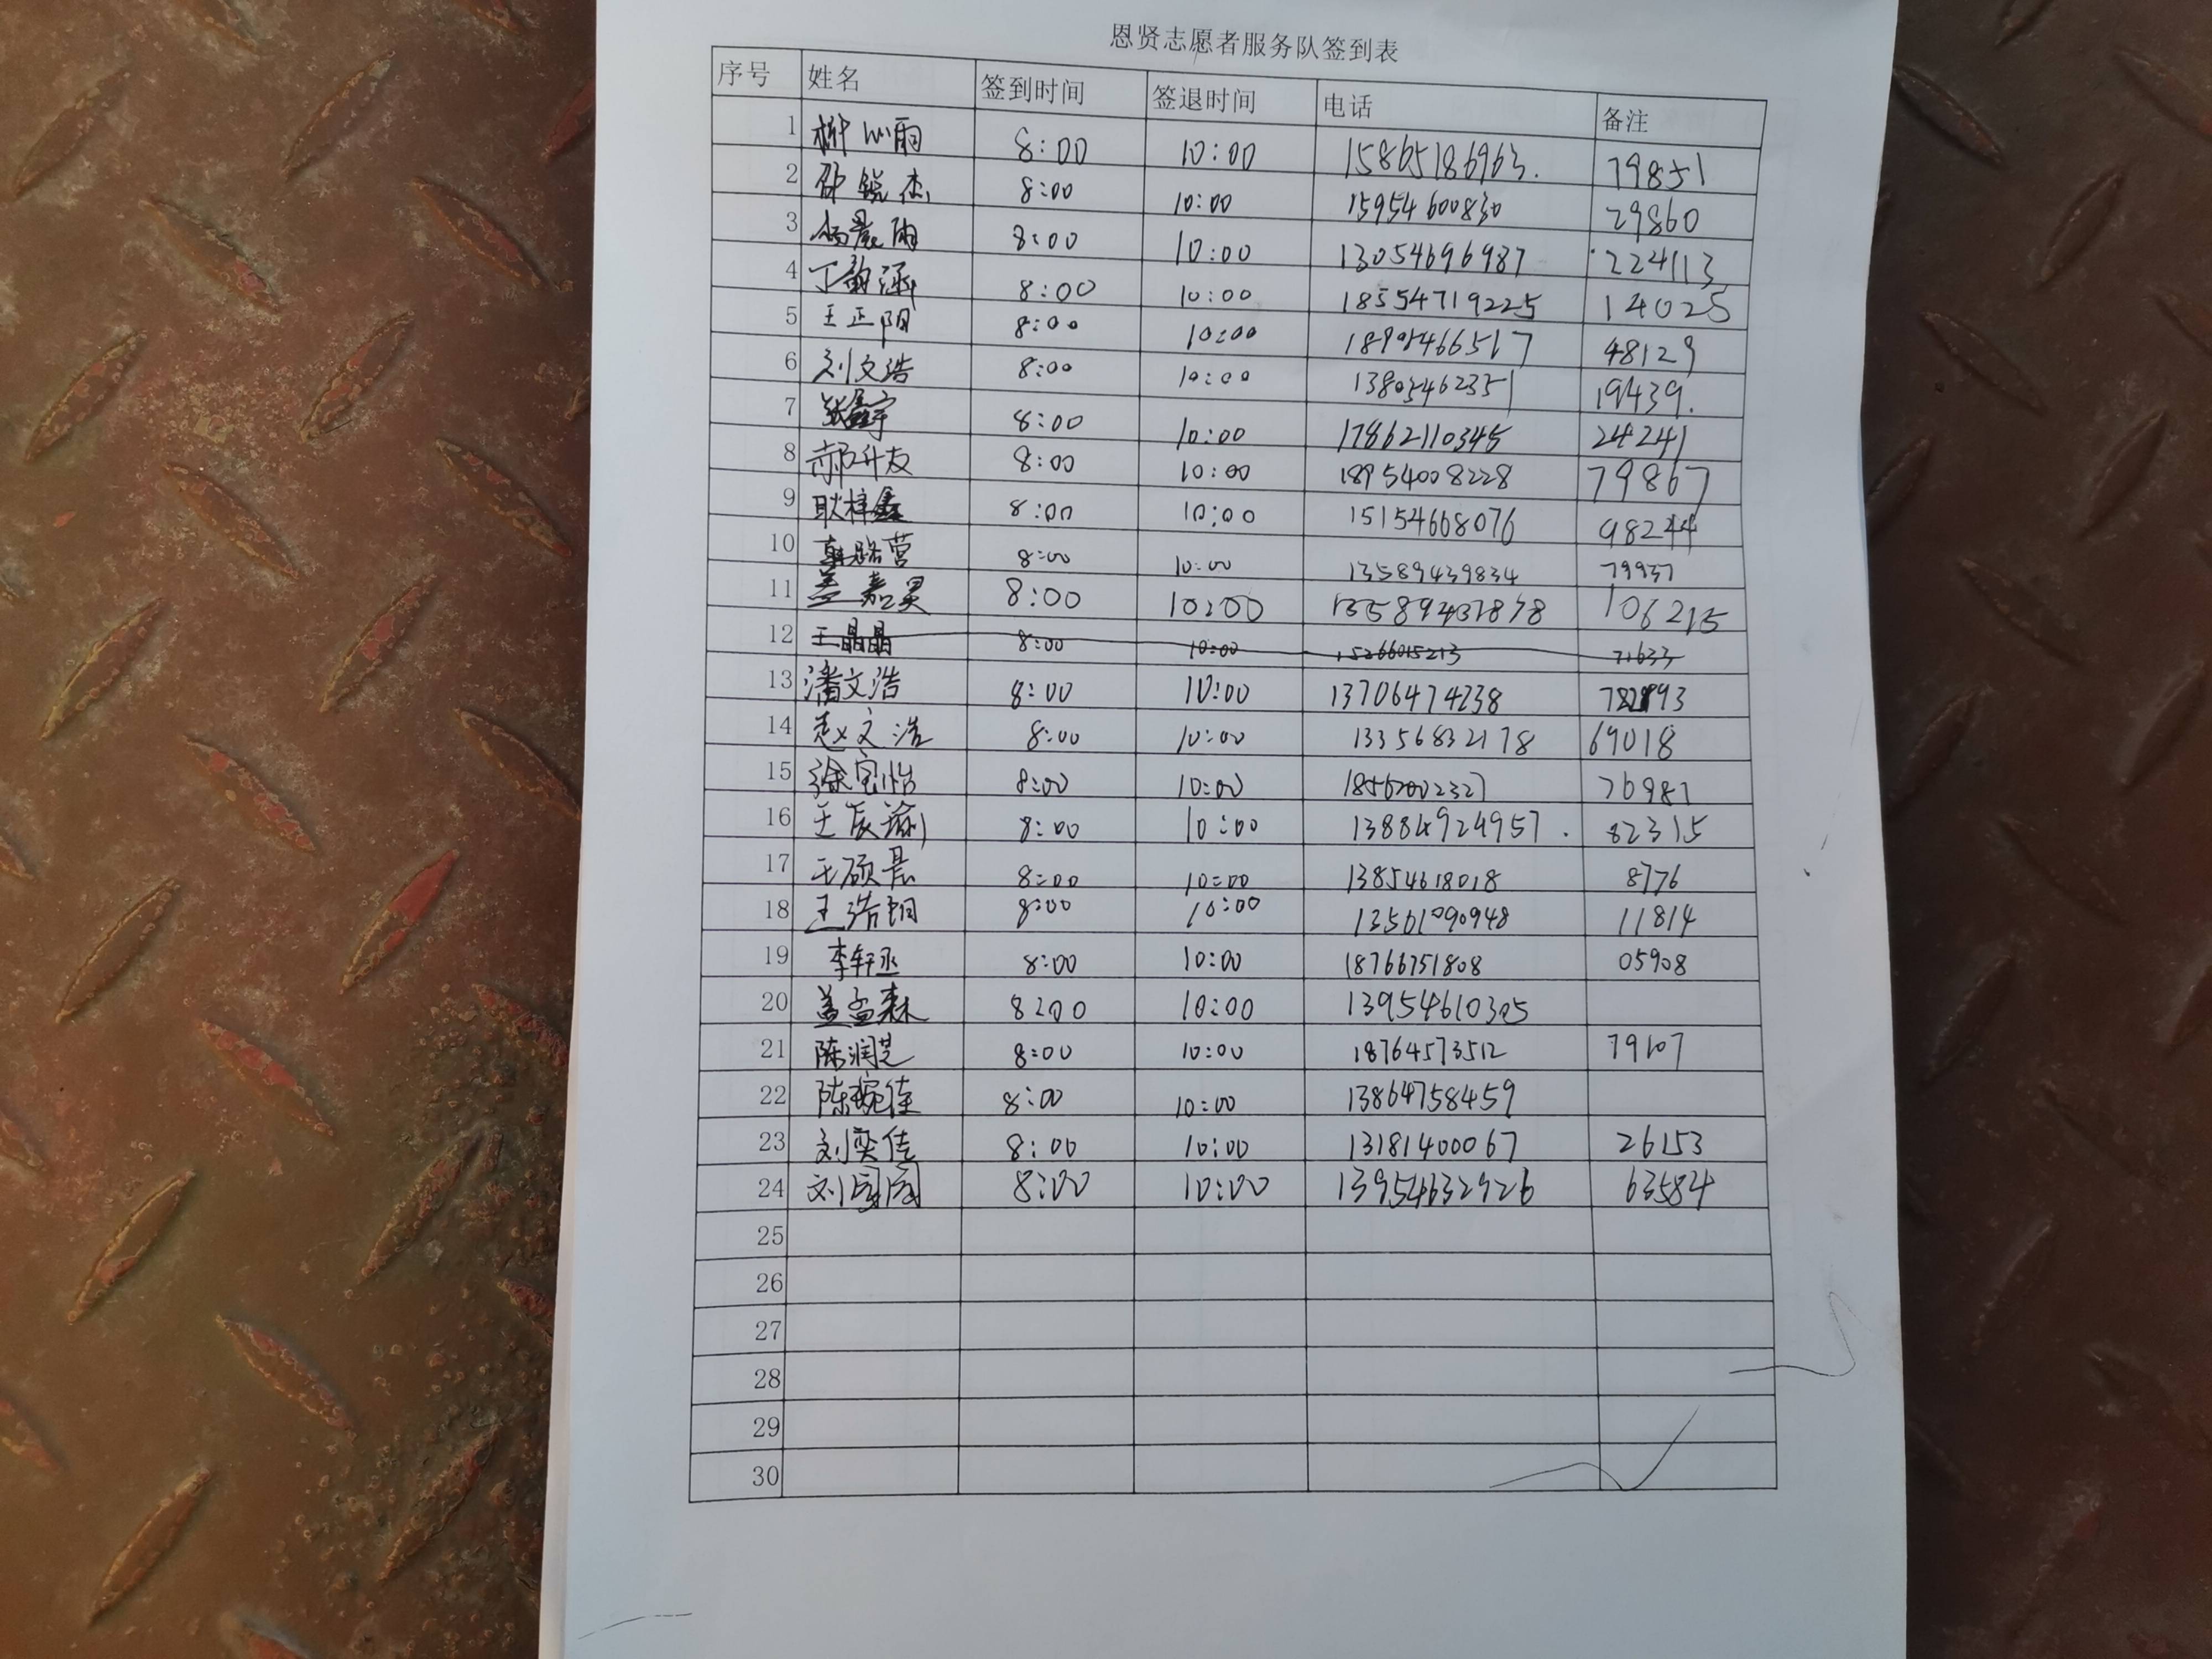 恩贤志愿者服务队签到表
序号 姓名 签到时间 签退时间 电话 备注
1 柳沁雨 8:00 10:00 15865186963. 79851
2 邵锐杰 8:00 10:00 15954600830 29860
3 杨晨雨 8:00 10:00 13054696987 224113
4 丁韵涵 8:00 10:00 18554719225 14025
5 王正阳 8:00 10:00 18905466517 48129
6 刘文浩 8:00 10:00 13805462351 19439.
7 张鑫宇 8:00 10:00 17862110345 24241
8 郝升友 8:00 10:00 18954008228 79867
9 耿梓鑫 8:00 10:00 15154668076 98244
10 营 8:00 10:00 13589439834 79937
11 盖嘉昊 8:00 10:00 106215
12 王晶晶 8:00 10:00 15266015213 71633
13 潘文浩 8:00 10:00 13706474238
14 赵文浩 8:00 10:00 13356832178 69018
15 徐宝怡 8:00 10:00 18562002327 76981
16 王辰瑜 8:00 10:00 13884924957. 82315
17 王硕晨 8:00 10:00 13854618018 8776
18 王浩翔 8:00 10:00 13561090948 11814
19 李轩丞 8:00 10:00 18766751808 05908
20 盖孟森 8:00 10:00 13954610305
21 陈润芝 8:00 10:00 18764573512 79107
22 陈琬佳 8:00 10:00 13864758459
23 刘奕佳 8:00 10:00 13181400067 26153
24 刘园园 8:00 10:00 13954632926 63584
25
26
27
28
29
30